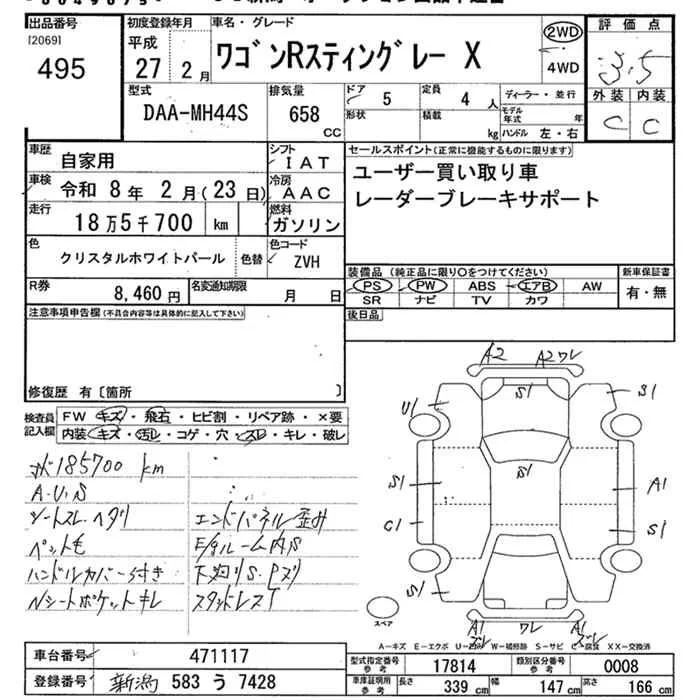 出品番号
[2069]
495
初度登録年月
平成
27年 2月
車名・グレード
ワゴンRスティングレー X
2WD
4WD
評価点
3.5
外装 内装
C C
型式
DAA-MH44S
排気量
658
CC
ドア
5
形状
定員
4人
積載
kg
ディーラー・並行
モデル年式 年
ハンドル 左・右
車歴
自家用
シフト
I A T
車検
令和 8年 2月(23日)
冷房
A A C
走行
18万5千700 km
燃料
ガソリン
色
クリスタルホワイトパール
色替
色コード
ZVH
R券
8,460円
名変通知期限
月 日
セールスポイント(正常に機能するものに限ります)
ユーザー買い取り車
レーダーブレーキサポート
装備品(純正品に限り○をつけてください)
PS PW ABS エアB AW
SR ナビ TV カワ
新車保証書
有・無
後日品
注意事項申告欄(不具合内容等は具体的に記入して下さい)
修復歴 有〔箇所 〕
検査員記入欄
FW キズ・飛石・ヒビ割・リペア跡・×要
内装 キズ・汚レ・コゲ・穴・スレ・キレ・破レ
185700 km
A・U・S
シートスレ・ヘタリ
ペット毛
ハンドルカバー付き
Nシートポケットキレ
エンドパネル歪み
E/gルーム内S
下廻りS・Pズリ
スタッドレスT
A2 A2ワレ
S1 S1
U1
S1
S1 A1
C1 S1
S1
A1 ワレ A1
スペア
A-キズ E-エクボ U-凹み W-補修跡 S-サビ C-腐食 XX-交換済
車台番号
471117
登録番号
新潟 583 う 7428
型式指定番号 参考
17814
類別区分番号 参考
0008
車庫証明用 参考
長さ 339cm
幅 147cm
高さ 166cm